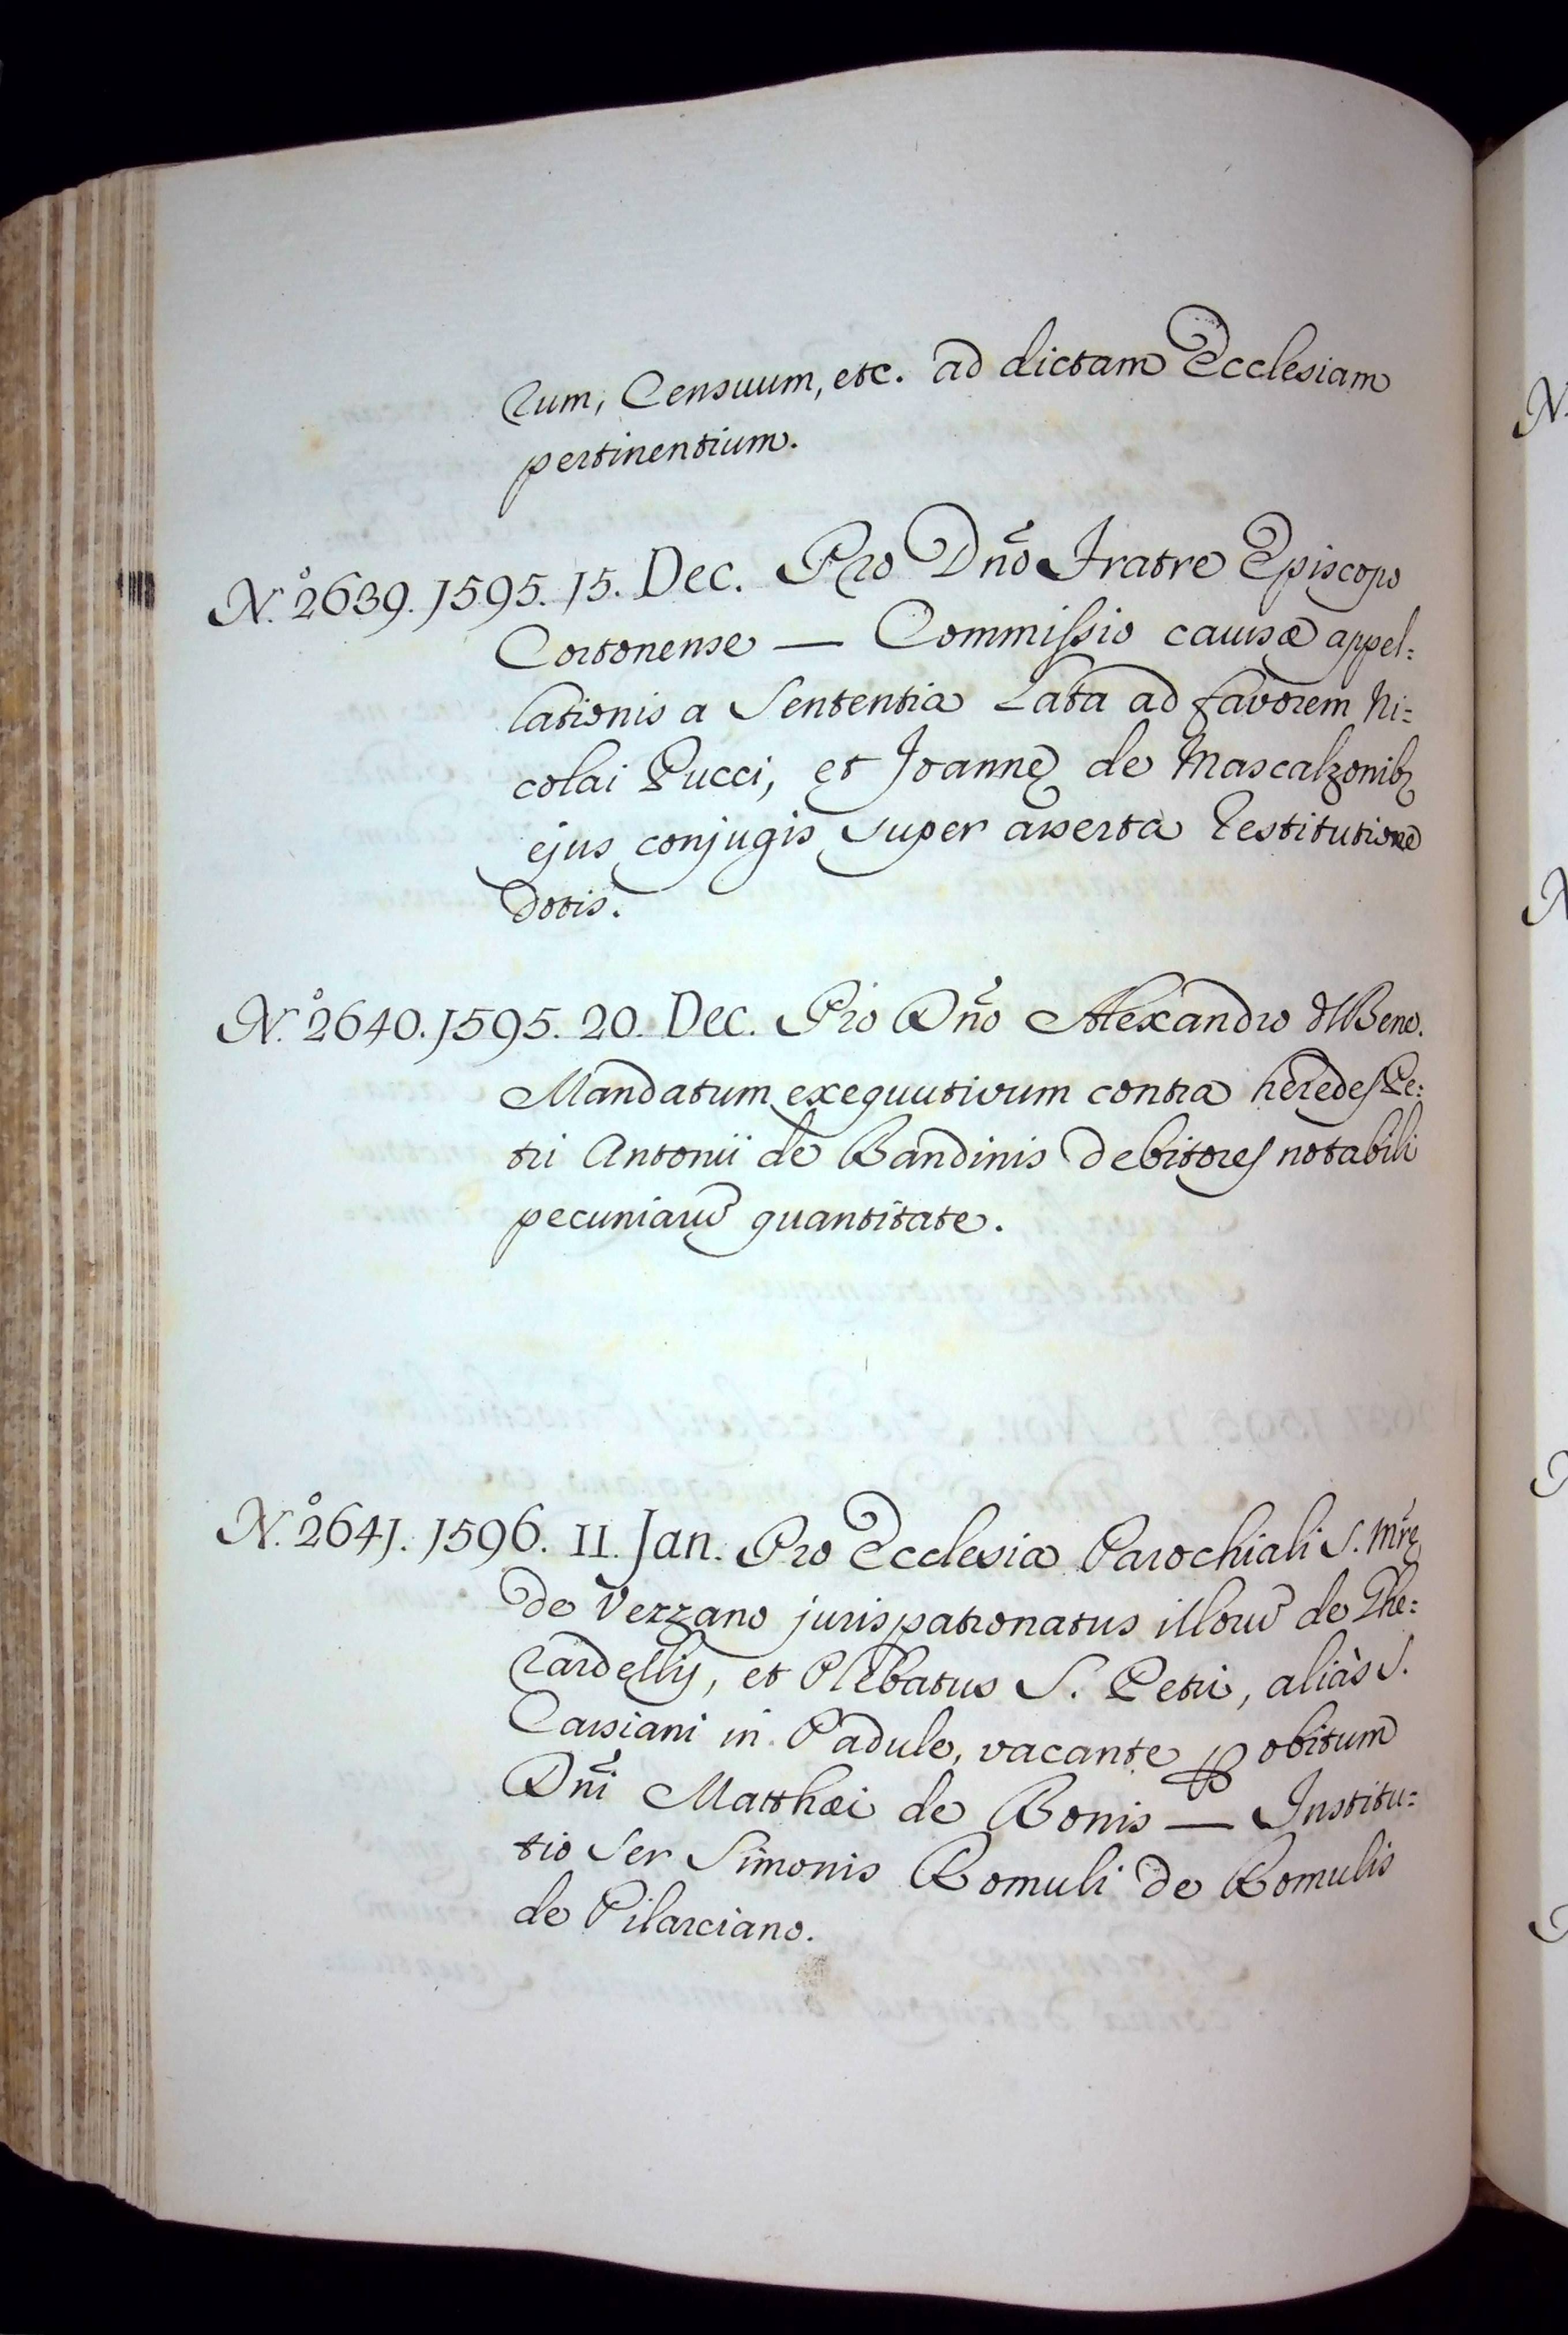 rum, Censuum, etc. ad dictam Ecclesiam
pertinentium.
N.º 2639. 1595. 15. Dec. Pro Dño Fratre Episcopo
Cortonense — Commissio causæ appel=
lationis a Sententia Lata ad favorem Ni=
colai Pucci, et Joannę de Mascalzonibȝ
ejus conjugis super asserta Restitutione
dotis.
N.º 2640. 1595. 20. Dec. Pro Dño Alexandro del Bene.
Mandatum exequutivum contra heredes Pe=
tri Antonii de Bandinis debitores notabili
pecuniarũ quantitate.
N.º 2641. 1596. 11. Jan. Pro Ecclesia Parochiali S. Mrę
de Vezzano jurispatronatus illorũ de Ghe=
rardellis, et Plebatus S. Petri, aliàs S.
Cassiani in Padule, vacante p obitum
Dñi Matthæi de Bonis — Institu=
tio Ser Simonis Romuli de Romulis
de Pilarciano.